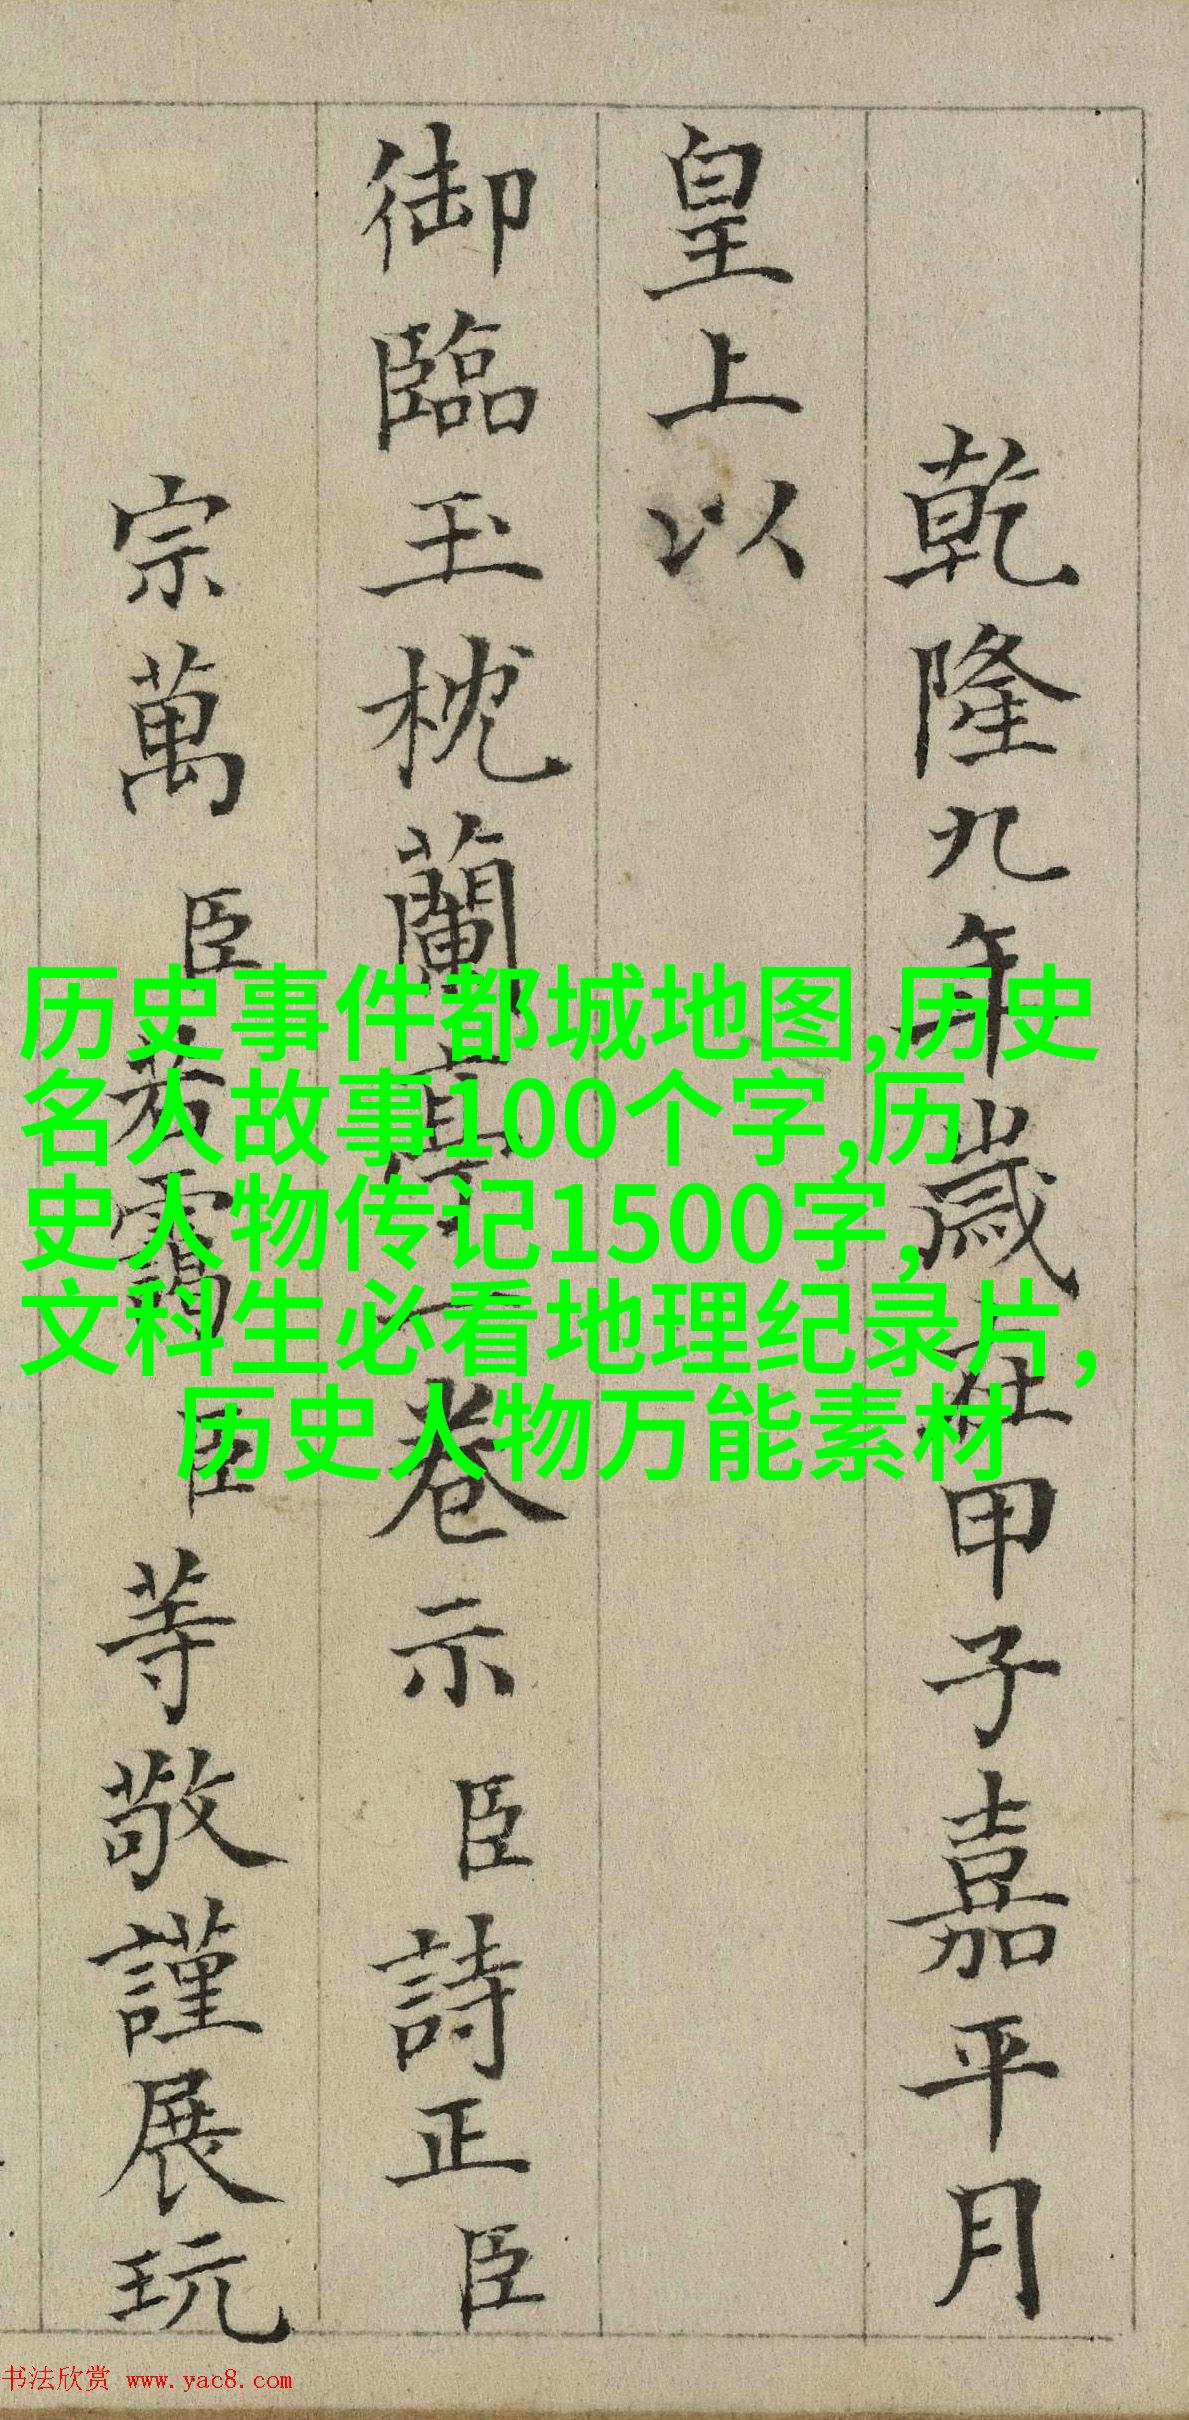 乾隆九年歲在甲子嘉平月
皇上以
御臨玉枕蘭亭一卷示臣詩正臣
宗萬臣若靄臣等敬謹展玩
历史事件都城地图,历史
名人故事100个字,历
史人物传记1500字,
文科生必看地理纪录片,
历史人物万能素材
书法欣赏 www.yac8.com